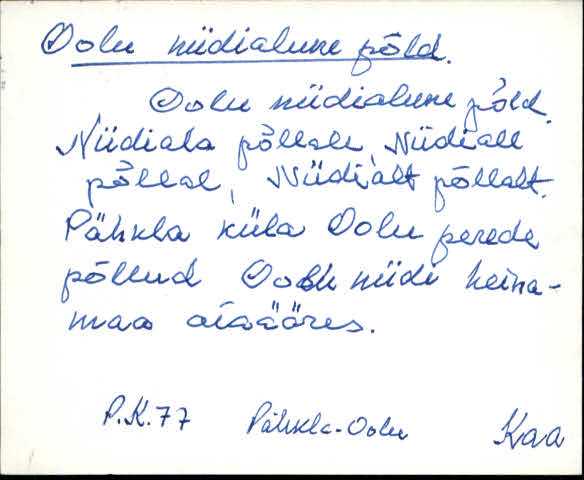 Oolu niidialune põld.
Oolu niidialune põld.
Niidiala põllale, Niidiall
põllal, Niidi'alt põllalt.
Pähkla küla Oolu perede
põllud Oolu niidi heina-
maa aiaääres.
P.K.77 Pähkla-Oolu Kaa